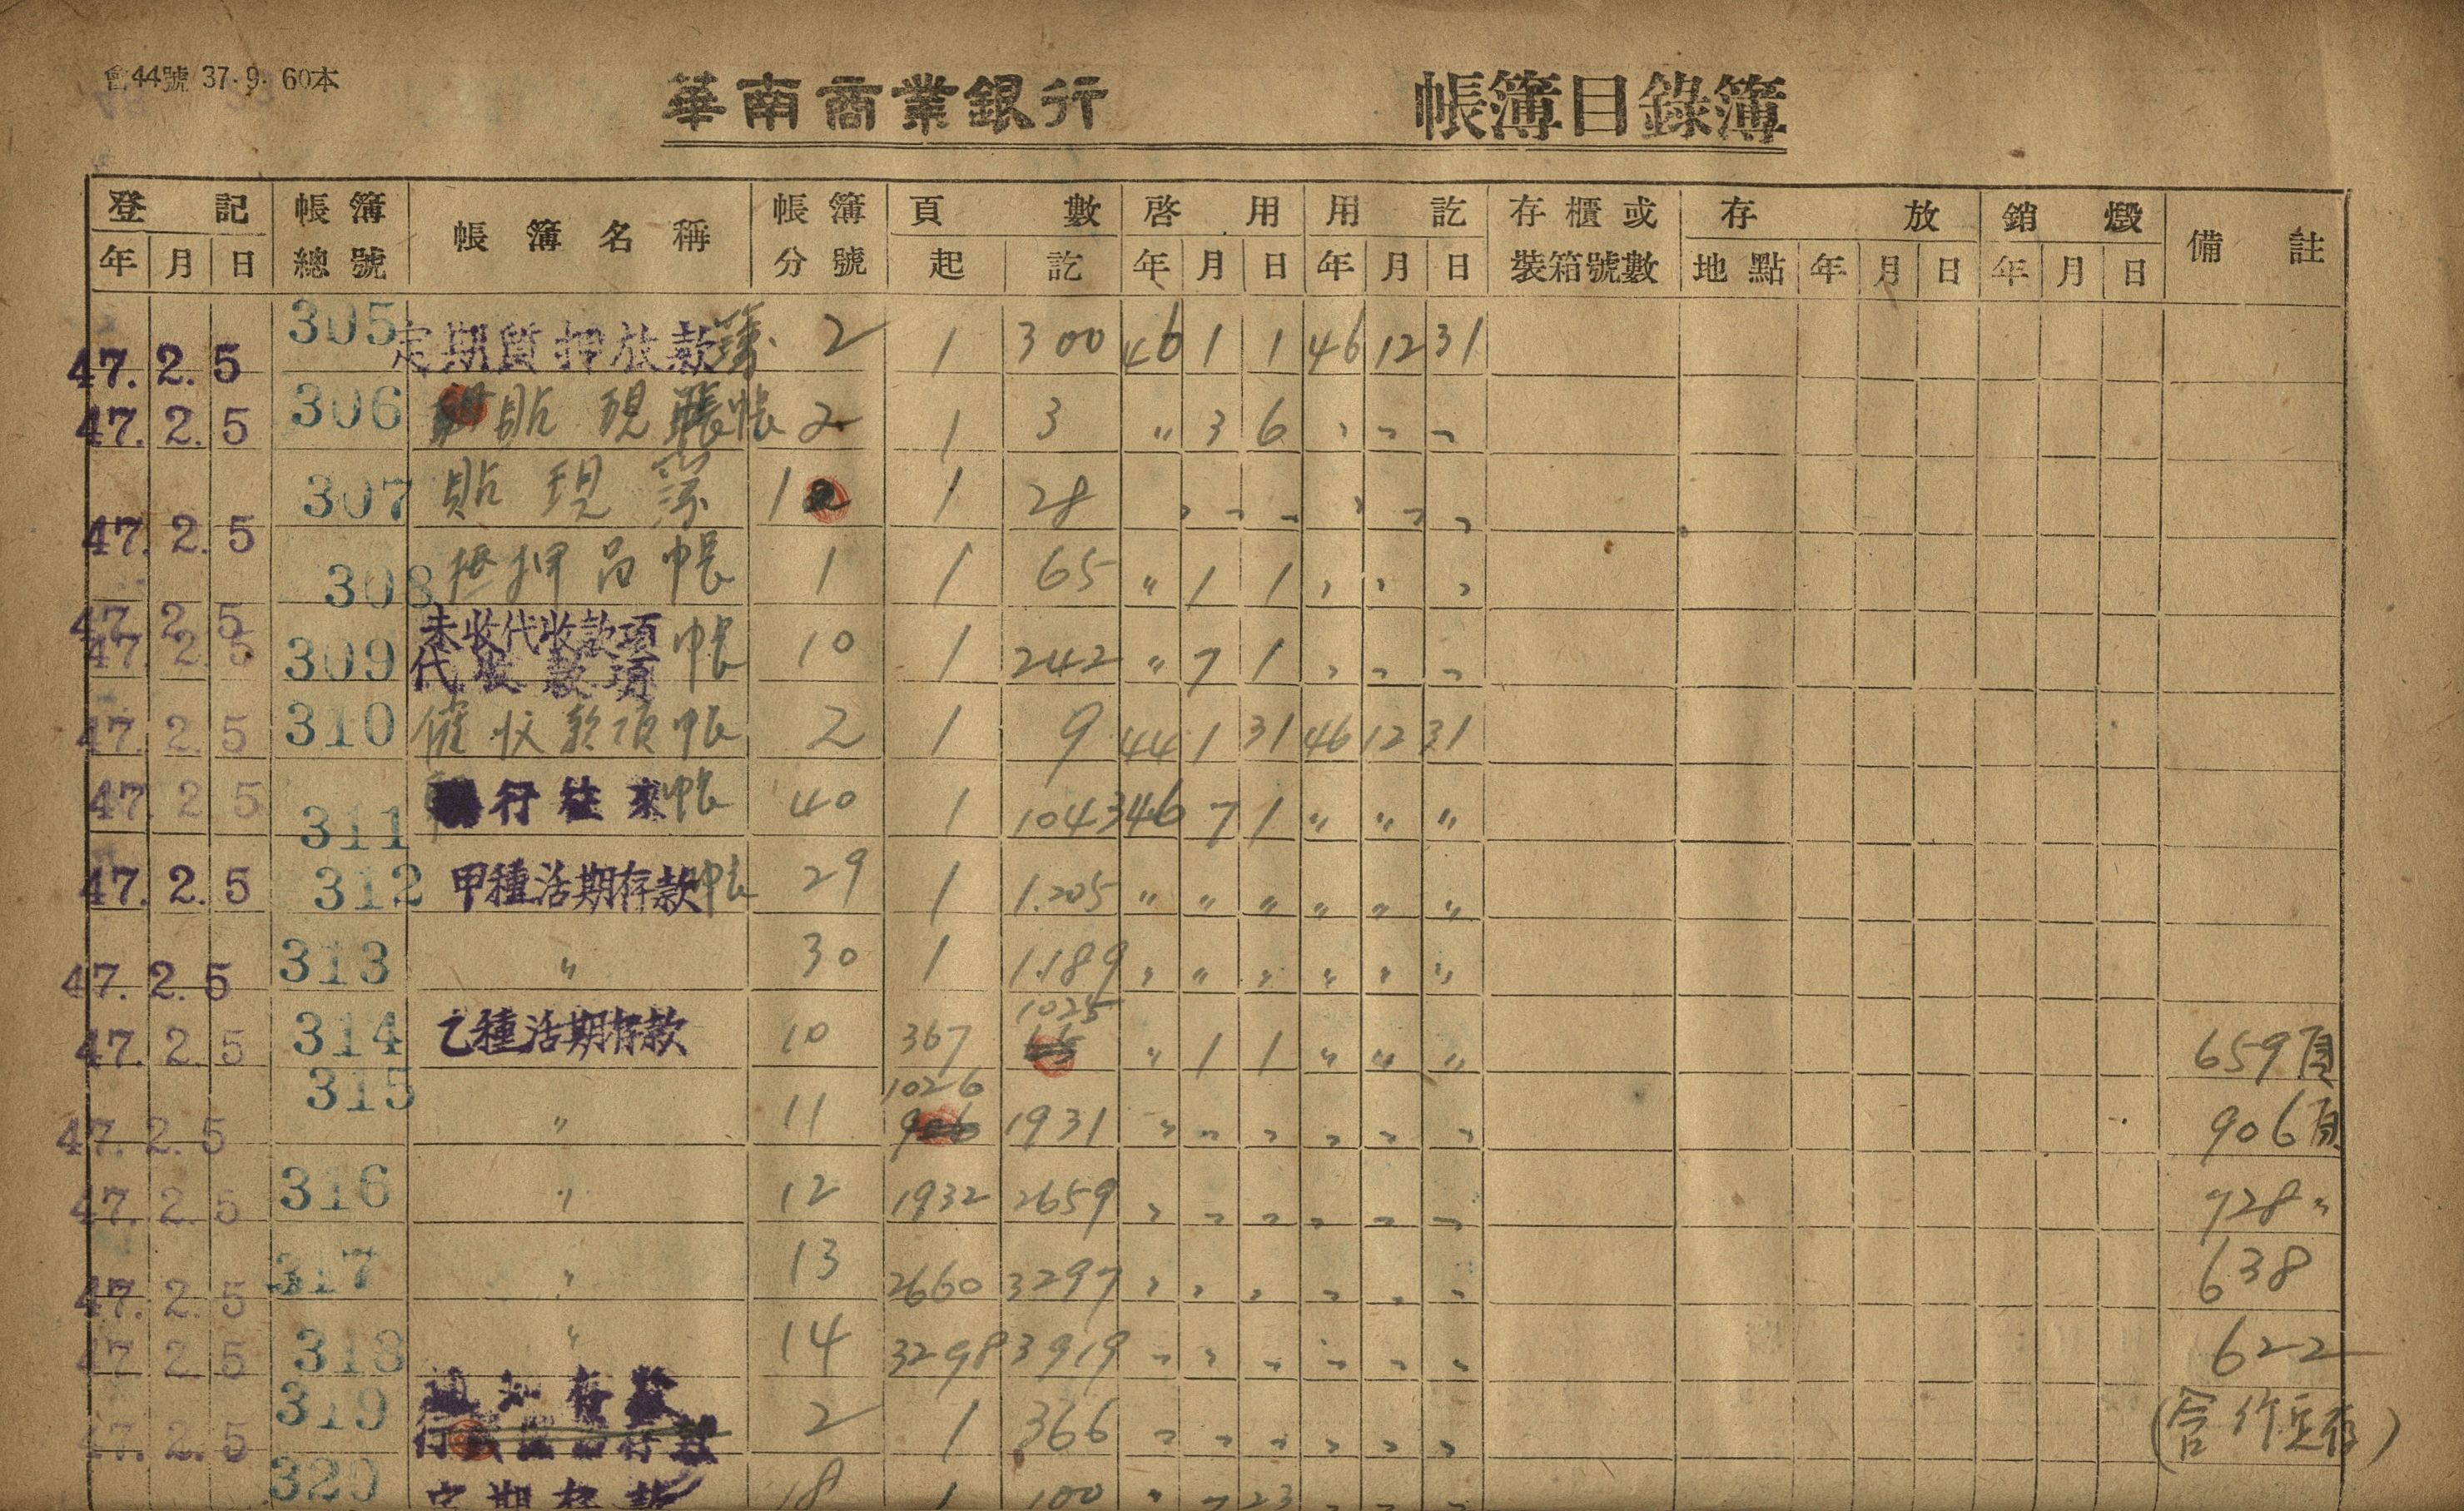 會44號 37.9. 60本
華南商業銀行 帳簿目錄簿
登記 帳簿 帳簿名稱 帳簿 頁數 啓用 用訖 存櫃或 存放 銷燬 備註
年 月 日 總號 分號 起 訖 年 月 日 年 月 日 裝箱號數 地點 年 月 日 年 月 日
47. 2. 5 305 定期質押放款 2 1 300 46 1 1 46 12 31
47. 2. 5 306 貼現 帳 2 1 3 〃 3 6 〃 〃 〃
47. 2. 5 307 貼現 1 1 28 〃 〃 〃 〃 〃 〃
47. 2. 5 308 抵押品帳 1 1 65 〃 1 1 〃 〃 〃
47. 2. 5 未收代收款項
47. 2. 5 309 代收款項 帳 10 1 242 〃 7 1 〃 〃 〃
47. 2. 5 310 催收款項帳 2 1 9 44 1 31 46 12 31
47. 2. 5 311 行往來帳 40 1 1043 46 7 1 〃 〃 〃
47. 2. 5 312 甲種活期存款帳 29 1 1.205 〃 〃 〃 〃 〃 〃
47. 2. 5 313 〃 30 1 1.189 〃 〃 〃 〃 〃 〃
47. 2. 5 314 乙種活期存款 10 367 1025 〃 1 1 〃 〃 〃 659頁
47. 2. 5 315 〃 11 1026 906 1931 〃 〃 〃 〃 〃 〃 906頁
47. 2. 5 316 〃 12 1932 2659 〃 〃 〃 〃 〃 〃 728〃
47. 2. 5 317 〃 13 2660 3297 〃 〃 〃 〃 〃 〃 638
47. 2. 5 318 〃 14 3298 3919 〃 〃 〃 〃 〃 〃 622
47. 2. 5 319 通知存款 2 1 366 〃 〃 〃 〃 〃 〃
320 定期存款 18 1 100 〃 7 23 〃 〃 〃